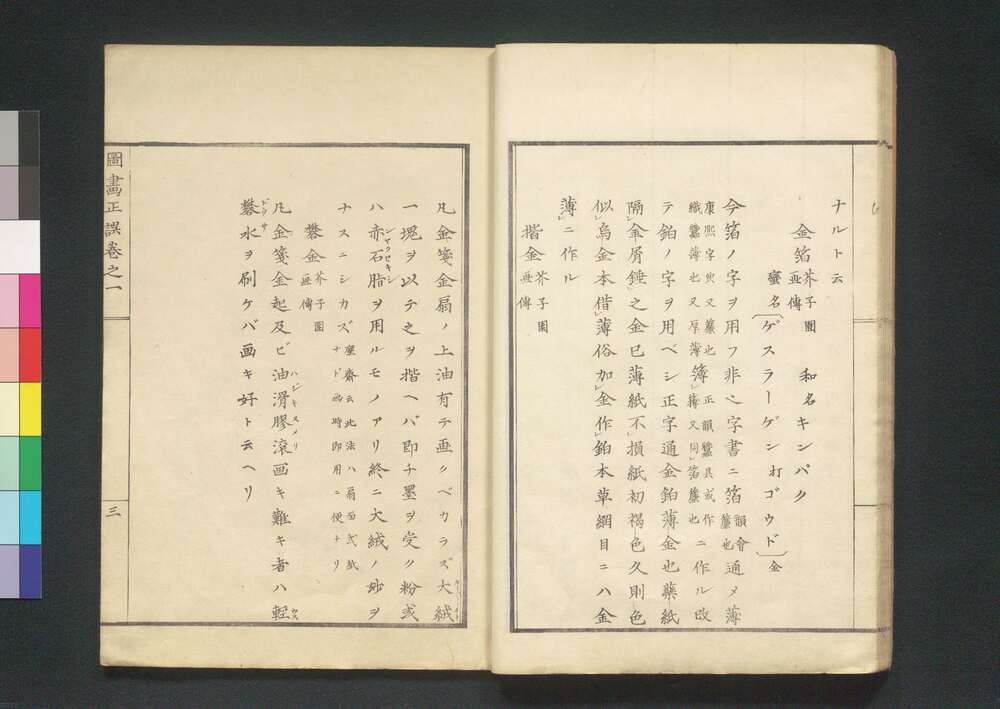 ナルト云
金箔 芥子園画傳 和名キンパク
蛮名〔ゲスラーゲン打ゴウド〕金
今箔ノ字ヲ用フ非ベ字書ニ箔 韻會簾也 通〆薄
康熙字典又簾也正韻蠶具或作 織蠶薄也又厚薄 簿 簿又同箔簾也 ニ作ル改
テ鉑ノ字ヲ用ベシ正字通金鉑薄金也藥紙
隔レ金屑錘之金已薄紙不レ損紙初褐色久則色
似レ烏金本借レ薄俗加レ金作レ鉑本草綱目ニハ金
薄ニ作ル
揩金 芥子園画傳
凡金箋金扇ノ上油有テ画クベカラズ大絨
一塊ヲ以テ之ヲ揩ヘバ即チ墨ヲ受ク粉或
ハ赤石脂シヤクセキシヲ用ルモノアリ終ニ大絨ノ妙ヲ
ナスニシカズ 麼齋云此法ハ扇面式紙ナド画時即用ニ便ナリ
礬金 芥子園画傳
凡金箋金起及ビ油滑ハジキスメリ膠滾画キ難キ者ハ輕ウス
礬ドウサ水ヲ刷ケバ画キ好ト云ヘリ
圖畵正誤卷之一
三